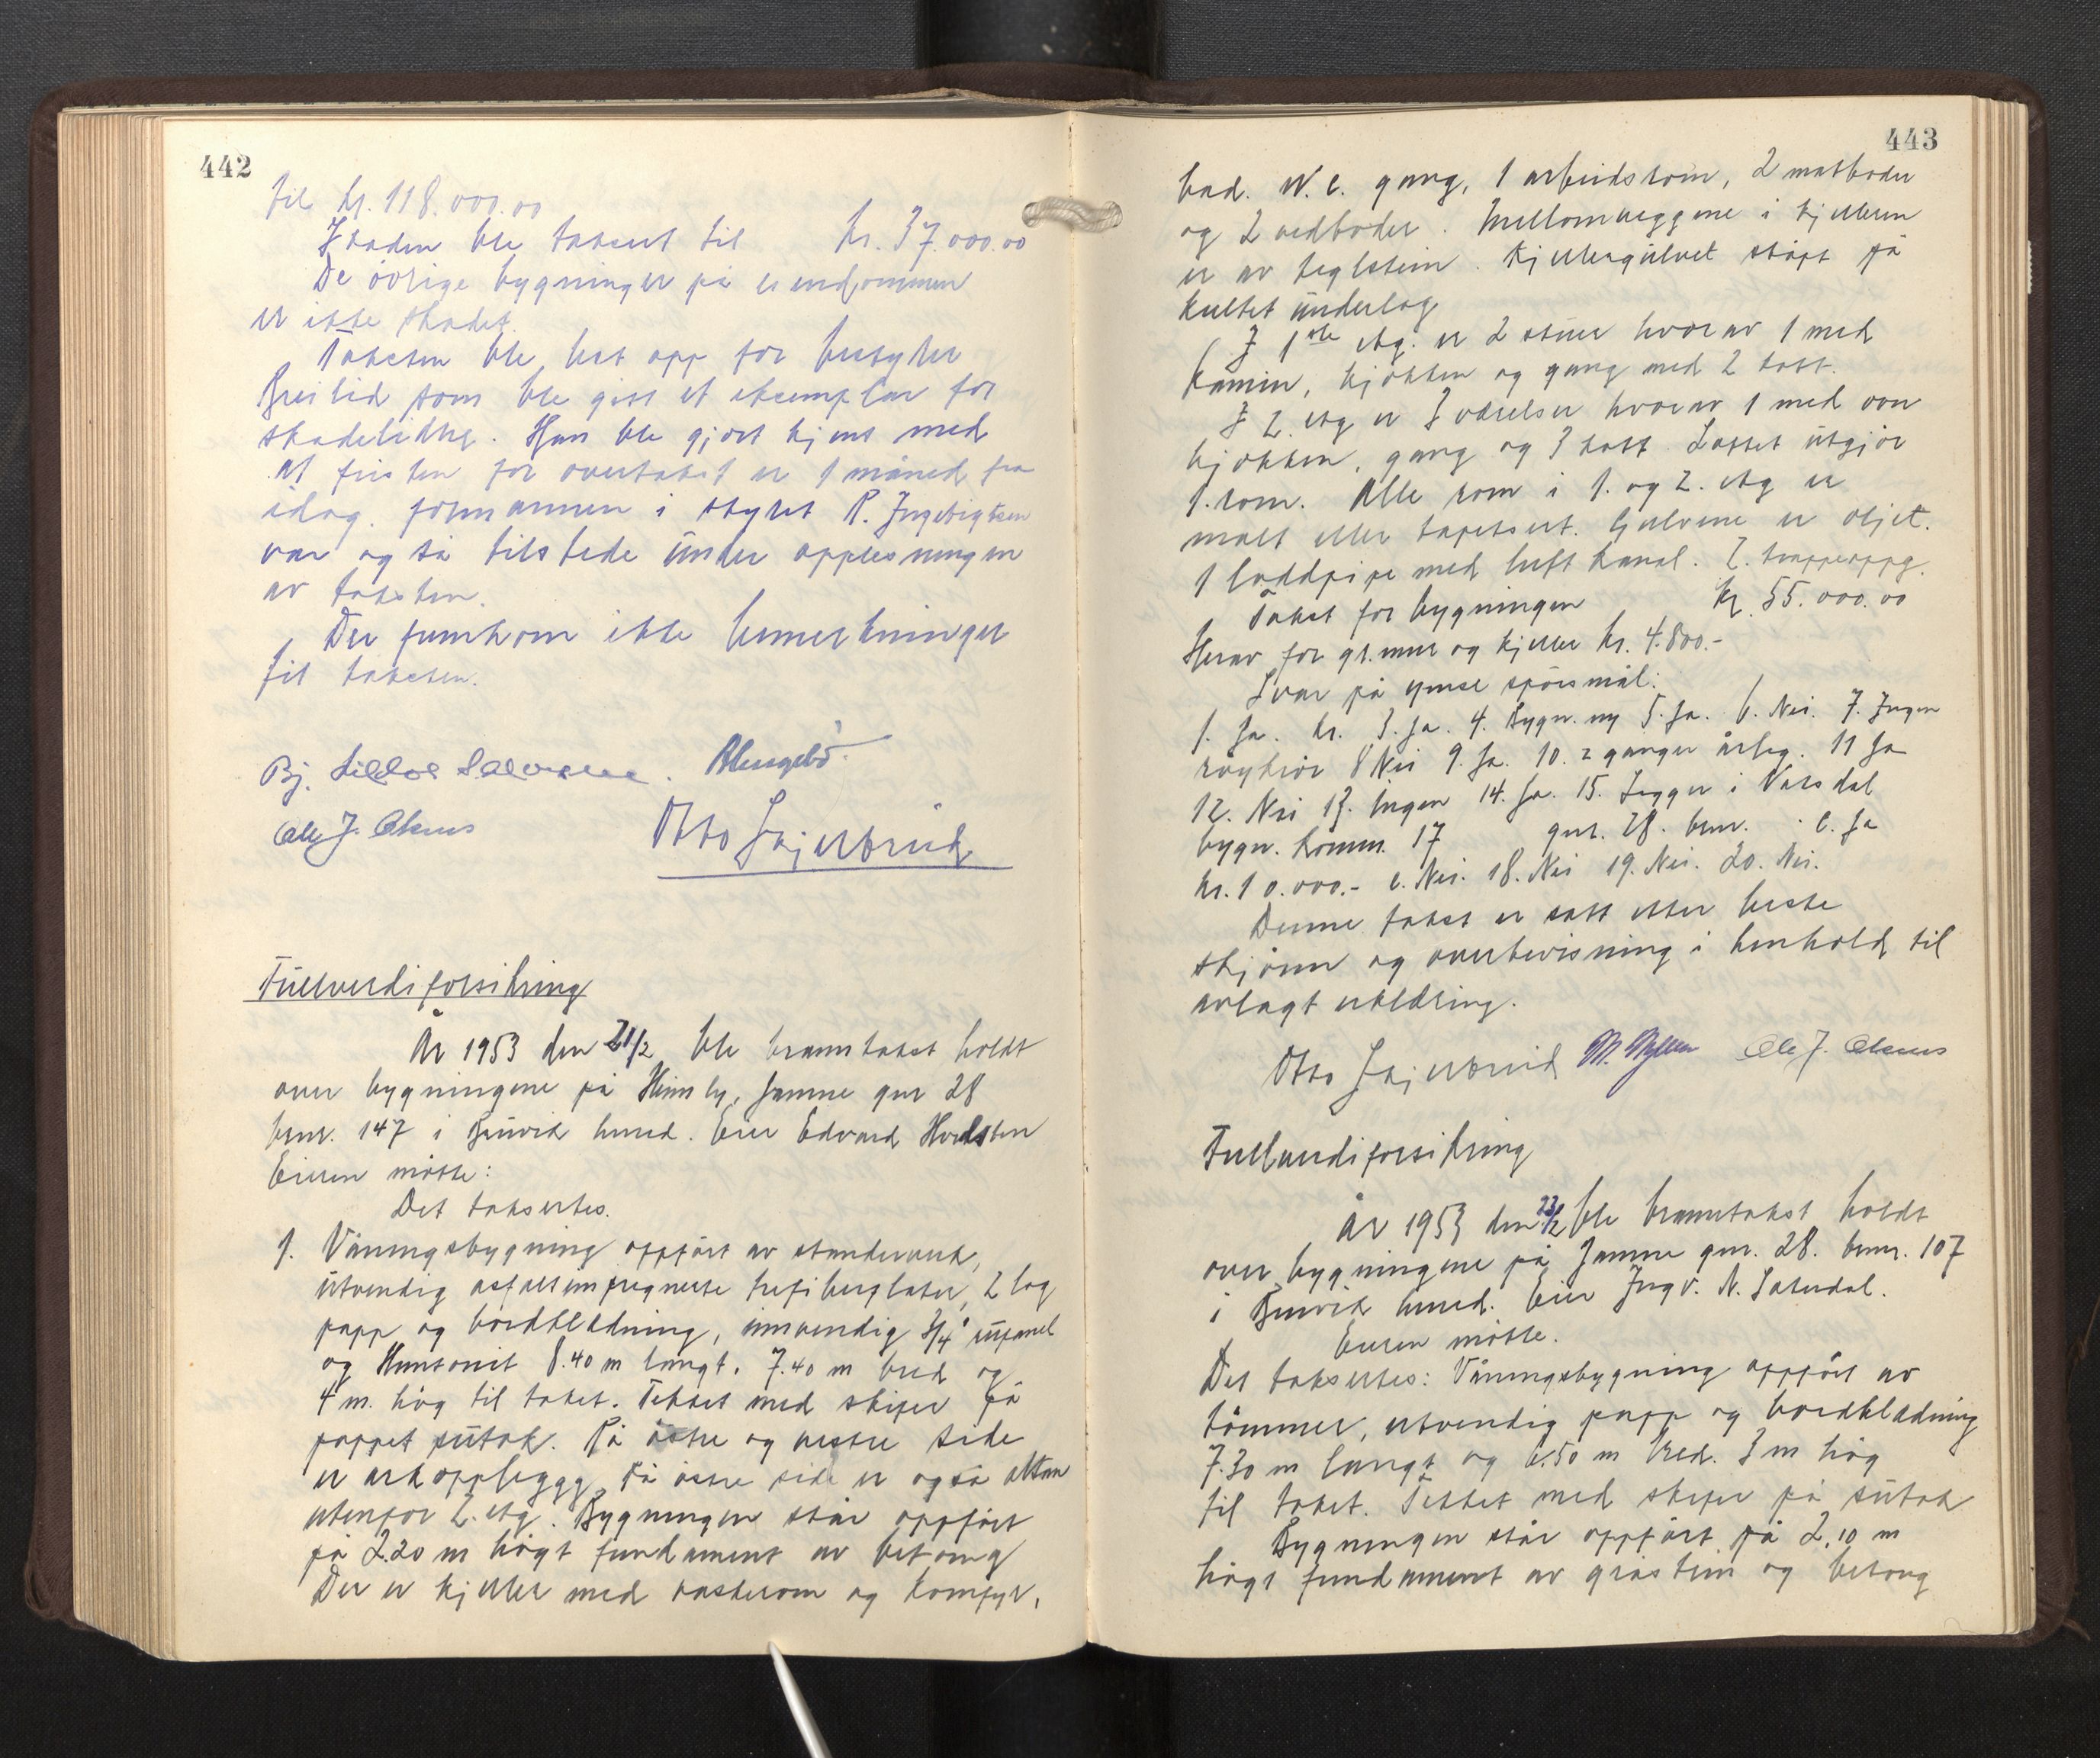 442
til kr. 118.000.00
Skaden ble taksert til kr. 37.000.00
De övrige bygninger på eiendommen
er ikke skadet.
Taksten ble lest opp for bestyrer
Breilid som ble gitt et eksemplar for
skadelidte. Han ble gjort kjent med
at fristen for overtakst er 1 måned fra
idag. formannen i styret P. Ingebrigtsen
var og så tilstede ünder opplesningen
av taksten.
Der fremkom ikke bemerkninger
til taksten.
Ole J. Aknes
Otto
Fullverdiforsikring
År 1953 den 21/2 ble branntakst holdt
over bygningene på Heimly, Jamne gnr 28
bnr. 147 i Bruvik herred. Eier Edvard
Eieren møtte:
Det taksertes.
1. Våningsbygning oppført av standerverk,
ütvendig asfaltimpregnerte trefiberplater, 2 lag
papp og bordkledning, innvendig 3/4" rüpanel
og Huntonit 8.40 m langt, 7.40 m bred og
4 m. høg til taket. Tekket med skifer på
pappet sütak. På östre og vestre side
er arkopplegg. På östre side er også altan
utenfor 2. etg. Bygningen står oppført
på 2.20 m høgt fundament av betong
Der er kjeller med vaskerom og komfyr,
443
bad. W.C. gang, 1 arbeidsrom, 2 matboder
og 2 vedboder. Mellomveggene i kjelleren
er av teglstein. Kjellergülvet støpt på
kultet ünderlag
I 1ste etg. er 2 stüer hvorav 1 med
kamin, kjøkken og gang med 2 kott.
I 2. etg er 3 værelser hvorav 1 med ovn
kjøkken, gang og 3 kott. Loftet ütgjör
1. rom. Alle rom i 1. og 2. etg er
malt eller tapetsert. Gulvene er oljet.
1 loddpipe med luft kanal. 2. trappeoppg.
Takst for bygningen kr. 55.000.00
Herav for gr.mur og kjeller kr. 4.800.-
Svar på ymse spörsmål:
1. Ja. kr. 3. Ja. 4. Bygn. ny 5. Ja. 6. Nei. 7. Ingen
röykrör 8 Nei 9. Ja. 10. 2 ganger årleg. 11 Ja
12. Nei 13. Ingen 14. Ja. 15. Ligger i Vaksdal
bygn. komm. 17 gnr. 28. bnr. c. Ja
kr. 10.000.- e. Nei. 18. Nei 19. Nei. 20. Nei.
Denne takst er satt etter beste
skjönn og overbevisning i henhold til
avlagt erklæring.
Otto Ole J. Aknes
Fullverdiforsikring
År 1953 den 23/2 ble branntakst holdt
over bygningene på Jamne gnr. 28. bnr. 107
i Bruvik herred. Eier Ingv. N.
Eieren møtte.
Det taksertes: Våningsbygning oppført av
tömmer, utvendig papp og bordkledning
7.30 m langt og 6.50 m bred. 3 m høg
til taket. Tekket med skifer på sütak
Bygningen står oppført på 2.10 m
høgt fundament av gråstein og betong